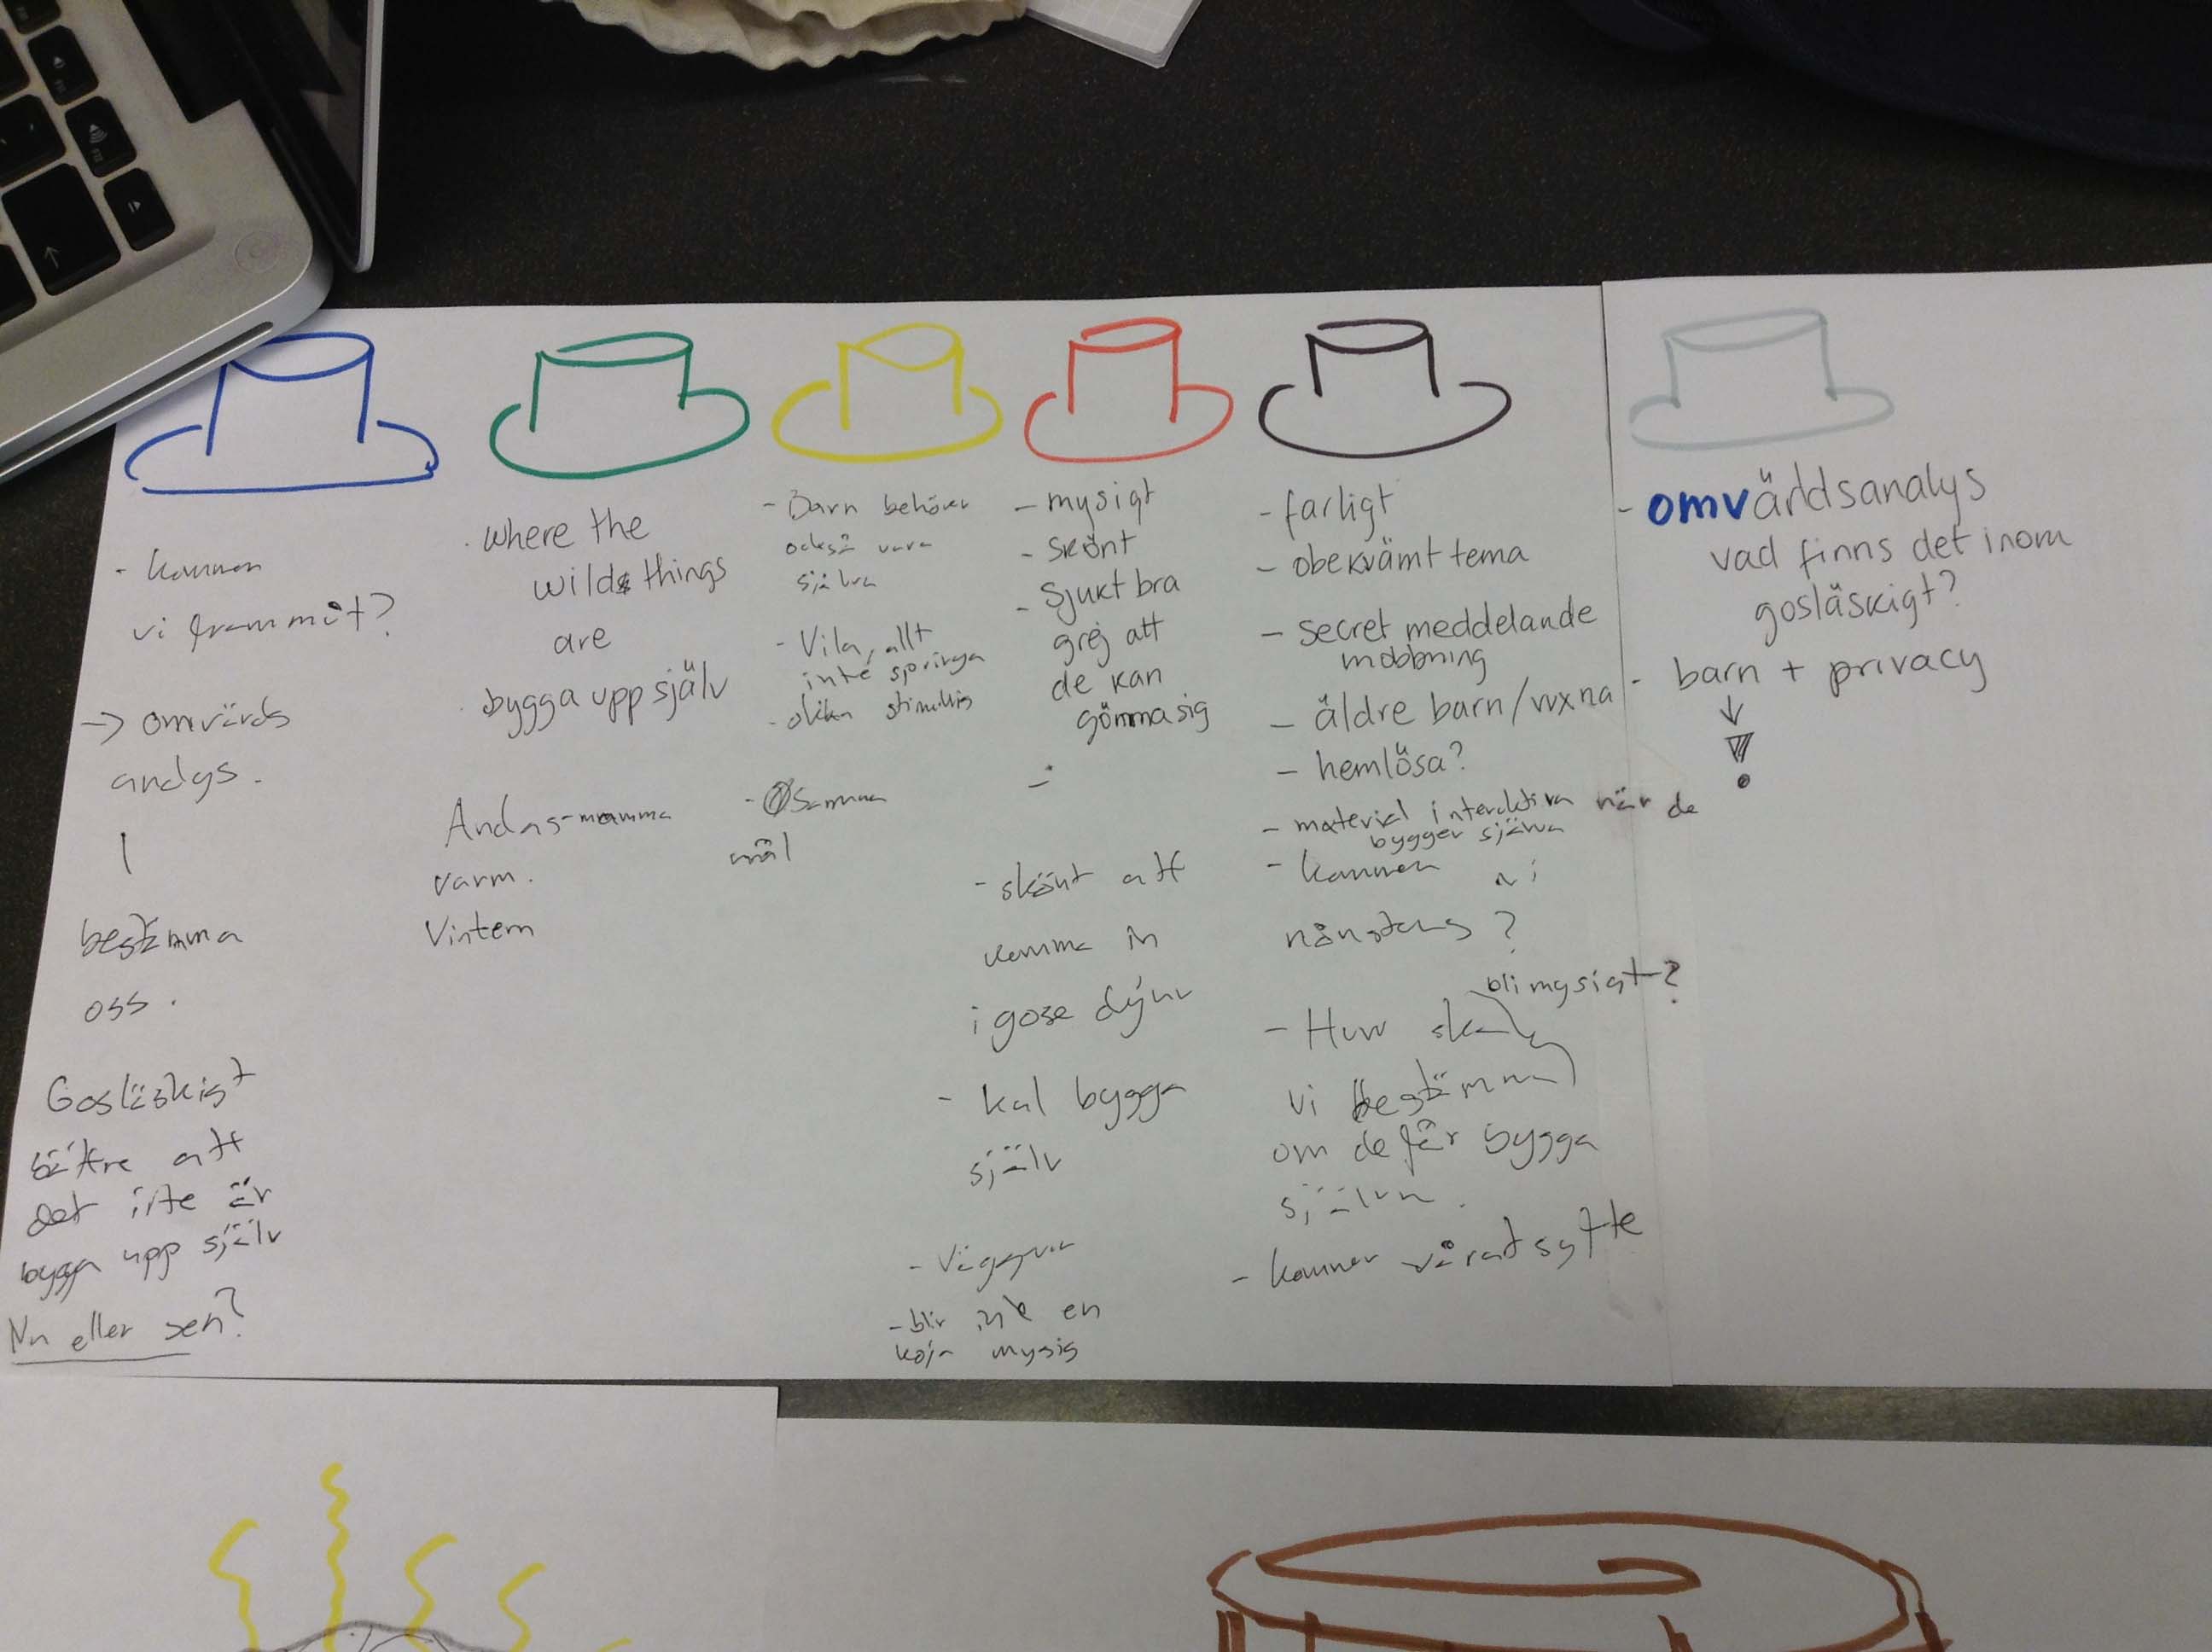 - kommer
vi frammåt?
-> omvärds
analys.
bestämma
oss.
Gosläskigt
bättre att
det inte är
bygga upp själv
Nu eller sen?
. where the
wilds things
are
. bygga upp själv
Andas-mamma
varm.
Vintern
- Barn behöver
också vara
själva
- Vila, allt
inte springa
- olika stimulis
- Samma
mål
- mysigt
- skönt
- sjukt bra
grej att
de kan
gömma sig
-
- skönt att
komma in
i gose dyna
- kul bygga
själv
- Väggar
- blir inte en
koja mysig
- farligt
- obekvämt tema
- secret meddelande
mobbning
- äldre barn/vuxna
- hemlösa?
- material interaktiva när de
bygger själva
- kommer vi
nånstans?
bli mysigt?
- Hur ska
vi bestämma
om de får bygga
själva.
- kommer vårat syfte
- omvärldsanalys
vad finns det inom
gosläskigt?
- barn + privacy
↓
!